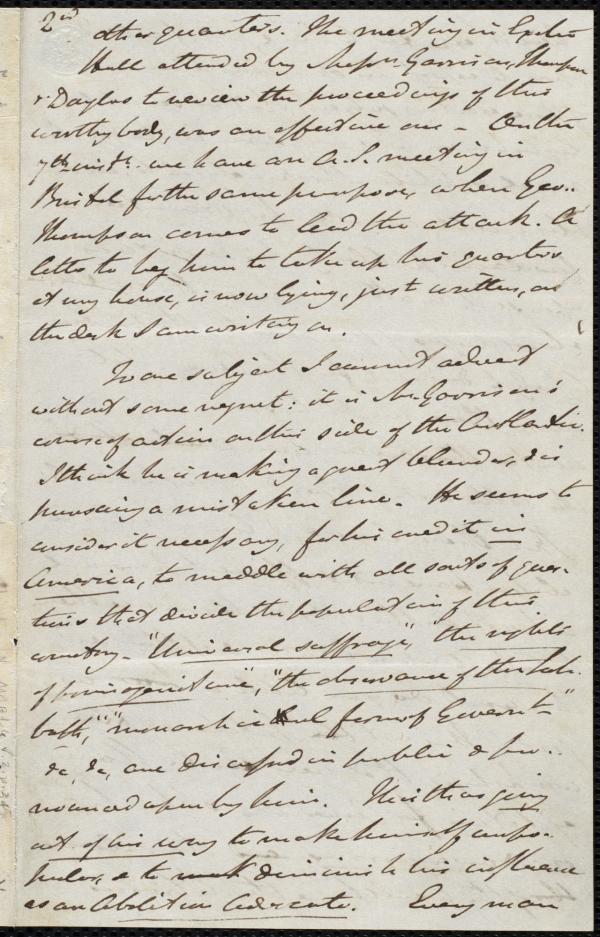 2nd
other quarters. The meeting in Exeter
Hall attended by Messrs. Garrison, Thompson
& Douglas to review the proceedings of this
worthy body, was an effective one - On the
7th inst. we have an A. S. meeting in
Bristol for the same purpose, when Geo.
Thompson comes to lead the attack. A
letter to beg him to take up his quarters
at my house, is now lying, just written, on
the desk I am writing on.
To one subject I cannot advert
without some regret: it is Mr Garrison's
course of action on this side of the Atlantic.
I think he is making a great blunder, & is
pursuing a mistaken line. He seems to
consider it necessary, for his credit in
America, to meddle with all sorts of ques-
tions that divide the population of this
country. "Universal suffrage", "the rights
of primogeniture", "the observance of the Sab-
bath," "monarchical form of Governt"
&c, &c, are discussed in public & pro-
nounced upon by him. This is going
out of his way to make himself unpo-
pular, & to diminish his influence
as an Abolition Advocate. Every man